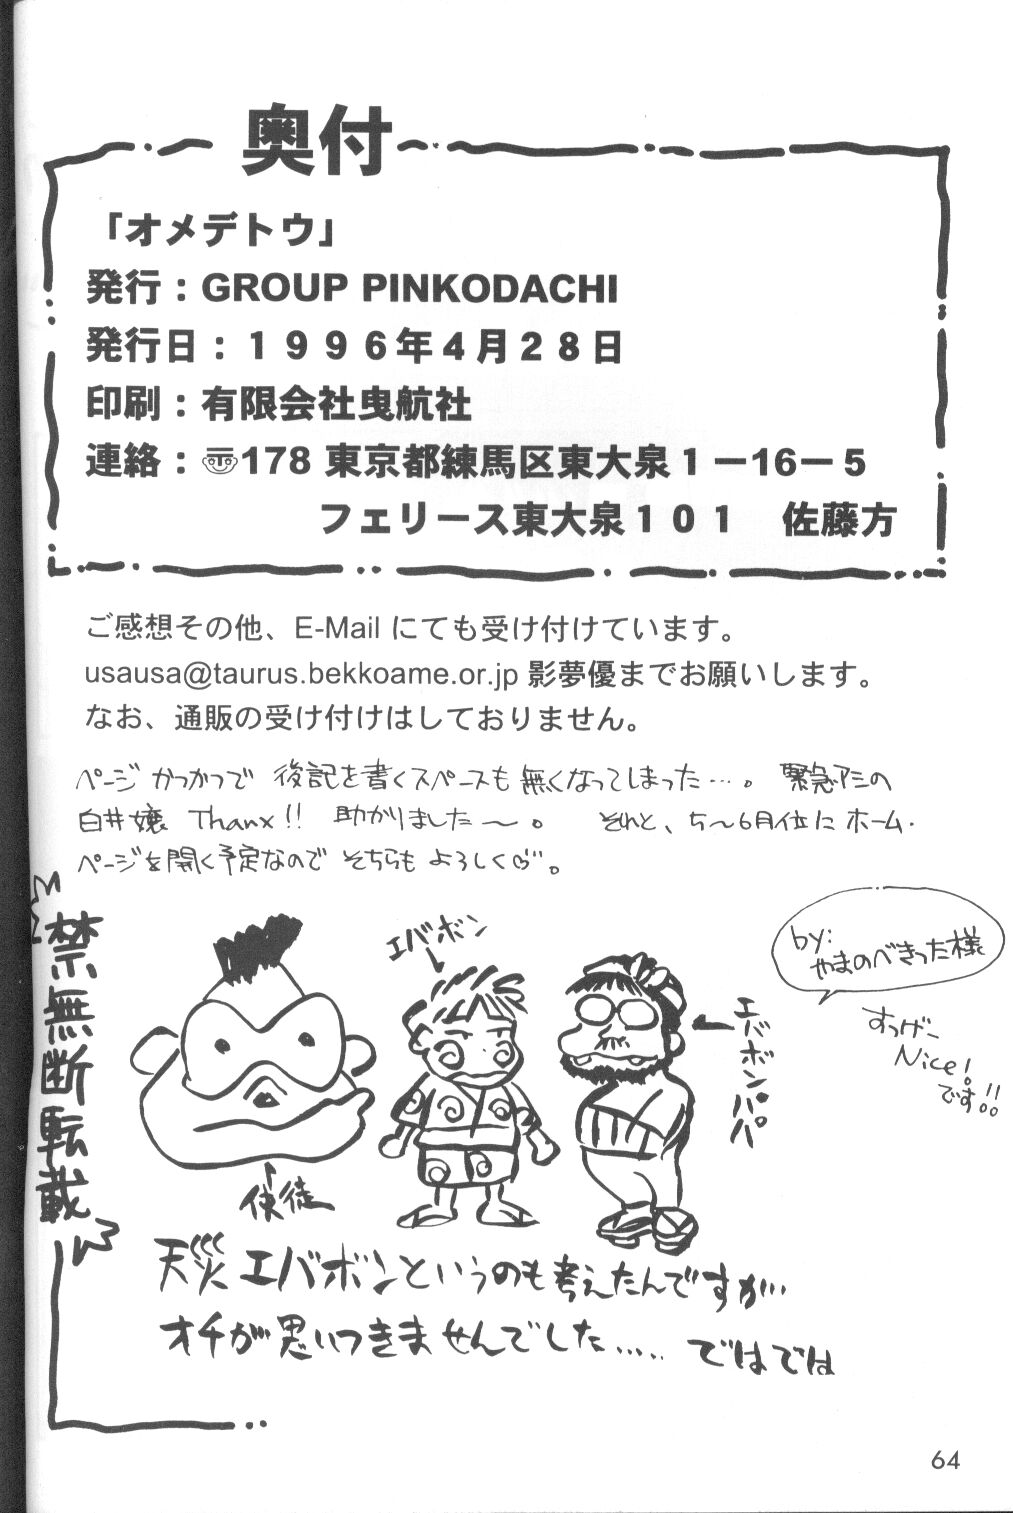 奥付
「オメデトウ」
発行：GROUP PINKODACHI
発行日：１９９６年４月２８日
印刷：有限会社曳航社
連絡：〠178 東京都練馬区東大泉１－16－５
フェリース東大泉１０１　佐藤方
ご感想その他、E-Mail にても受け付けています。
usausa@taurus.bekkoame.or.jp 影夢優までお願いします。
なお、通販の受け付けはしておりません。
ページかつかつで 後記を書くスペースも無くなってしまった…。 緊急アシの
白井嬢 Thanx!! 助かりました〜。 それと、5〜6月位にホーム・
ページを開く予定なので そちらもよろしく。
禁無断転載
エバボン
by:
やまのべきった様
エバボンパパ
すっげー
Nice!
です!!
使徒
天災エバボンというのも考えたんですが…
オチが思いつきませんでした…‥ ではでは
64